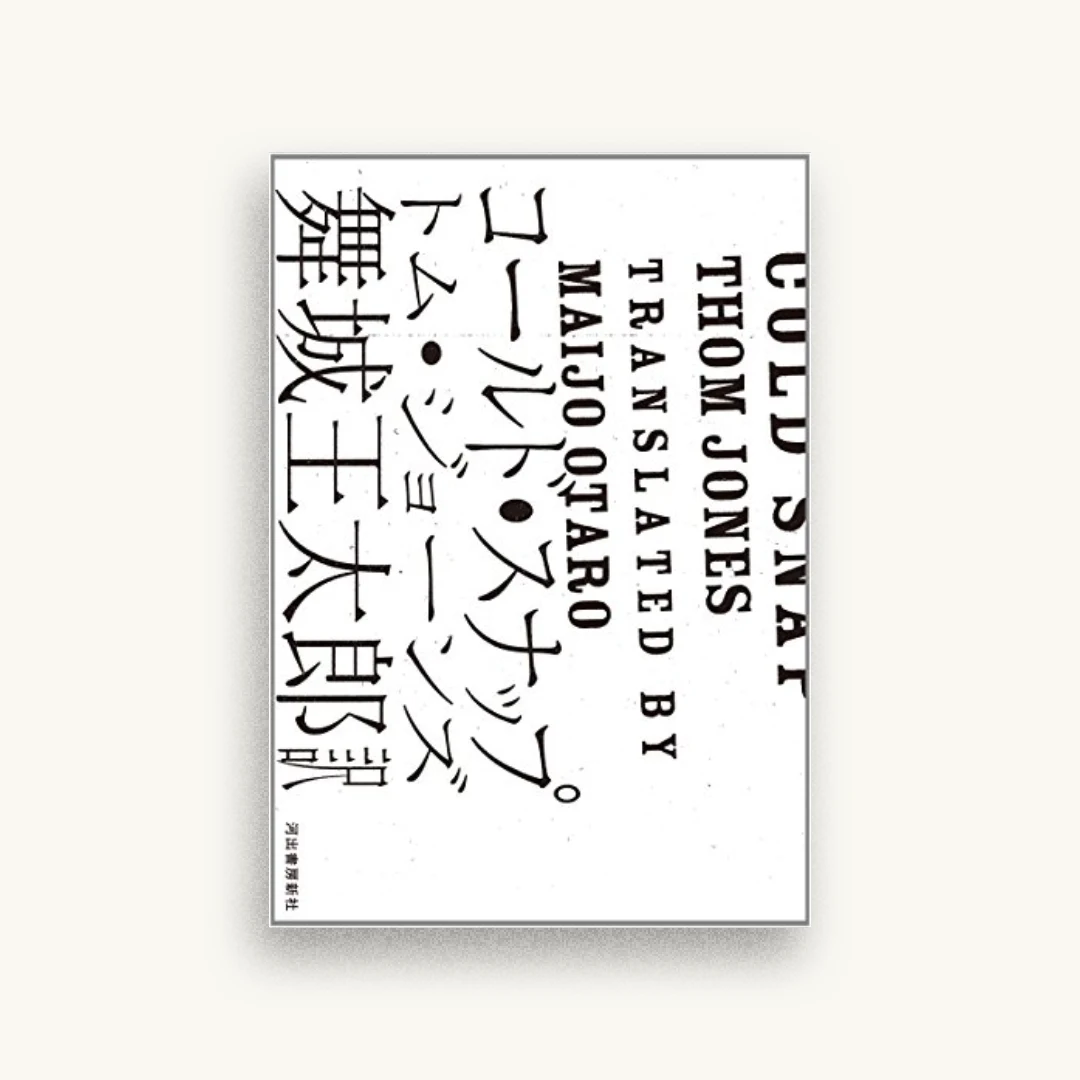 COLD SNAP
THOM JONES
TRANSLATED BY
MAIJO OTARO
コールド・スナップ
トム・ジョーンズ
舞城王太郎訳
河出書房新社